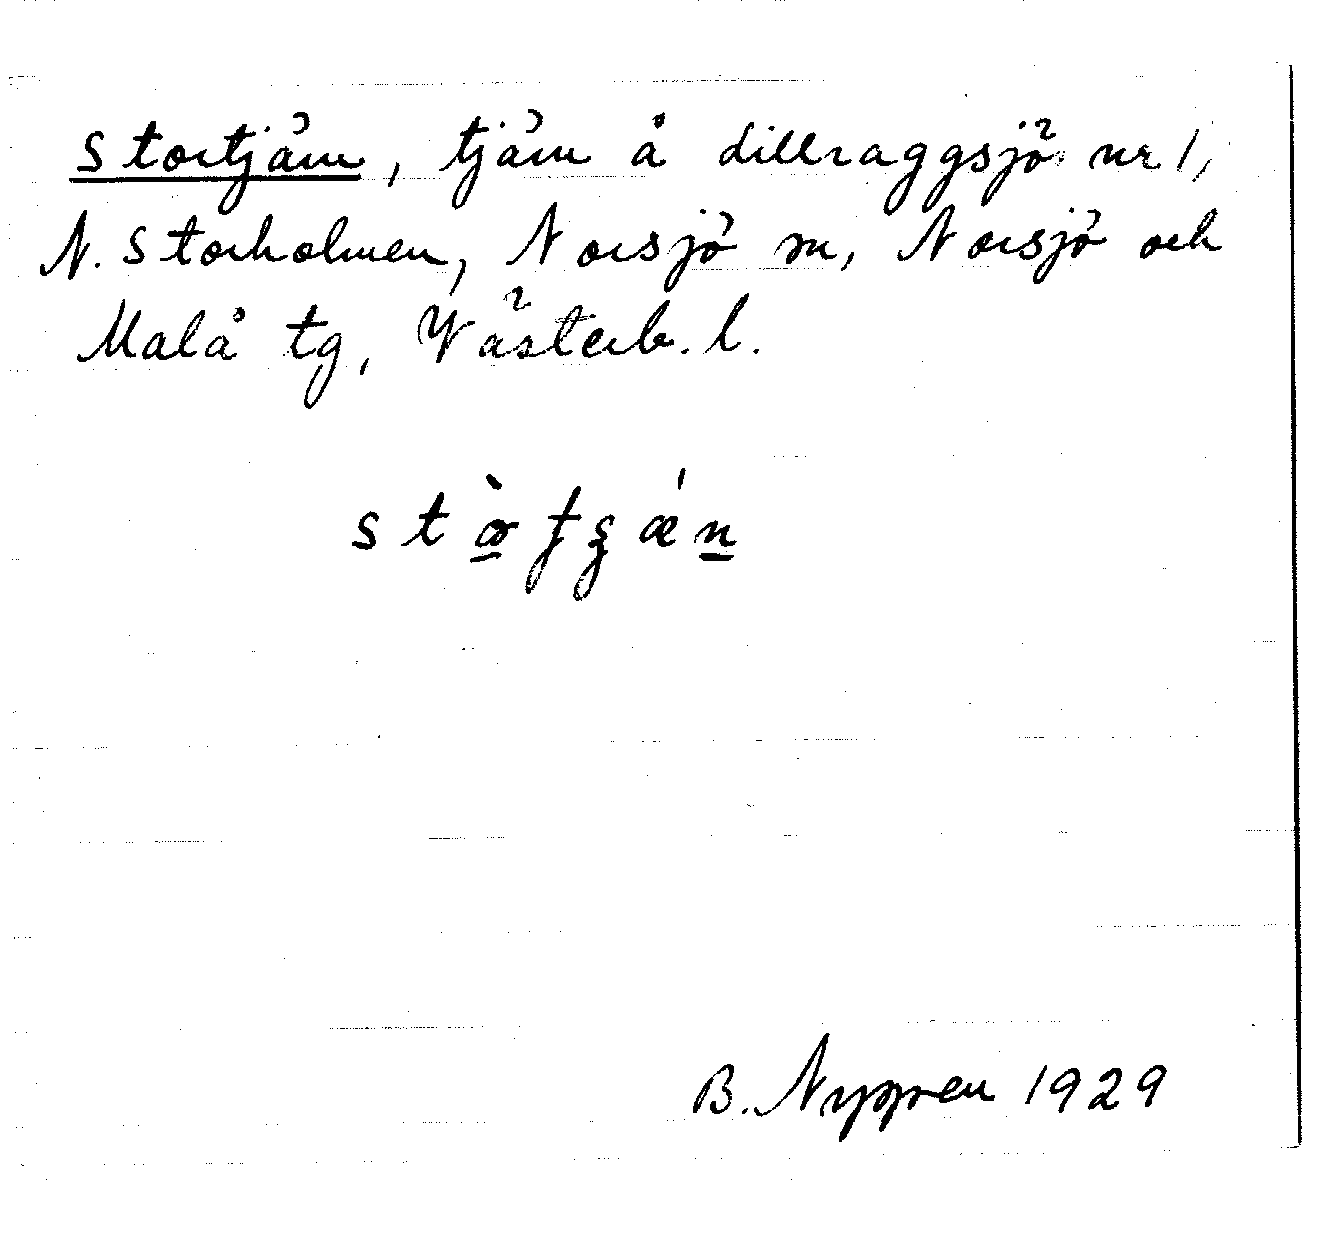 Stortjärn, tjärn å Lillraggsjö nr 1,
N. Storholmen, Norsjö sn, Norsjö och
Malå tg, Västerb. l.
B. Nygren 1929